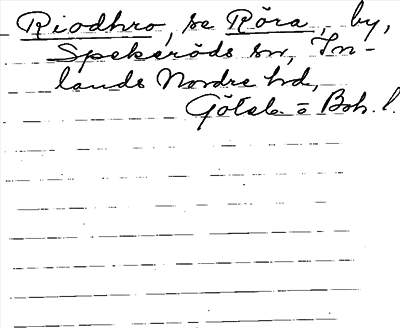 Riodhro, se Röra, by,
Spekeröds sn, In-
lands Nordre hd,
Götebo o Boh. l.